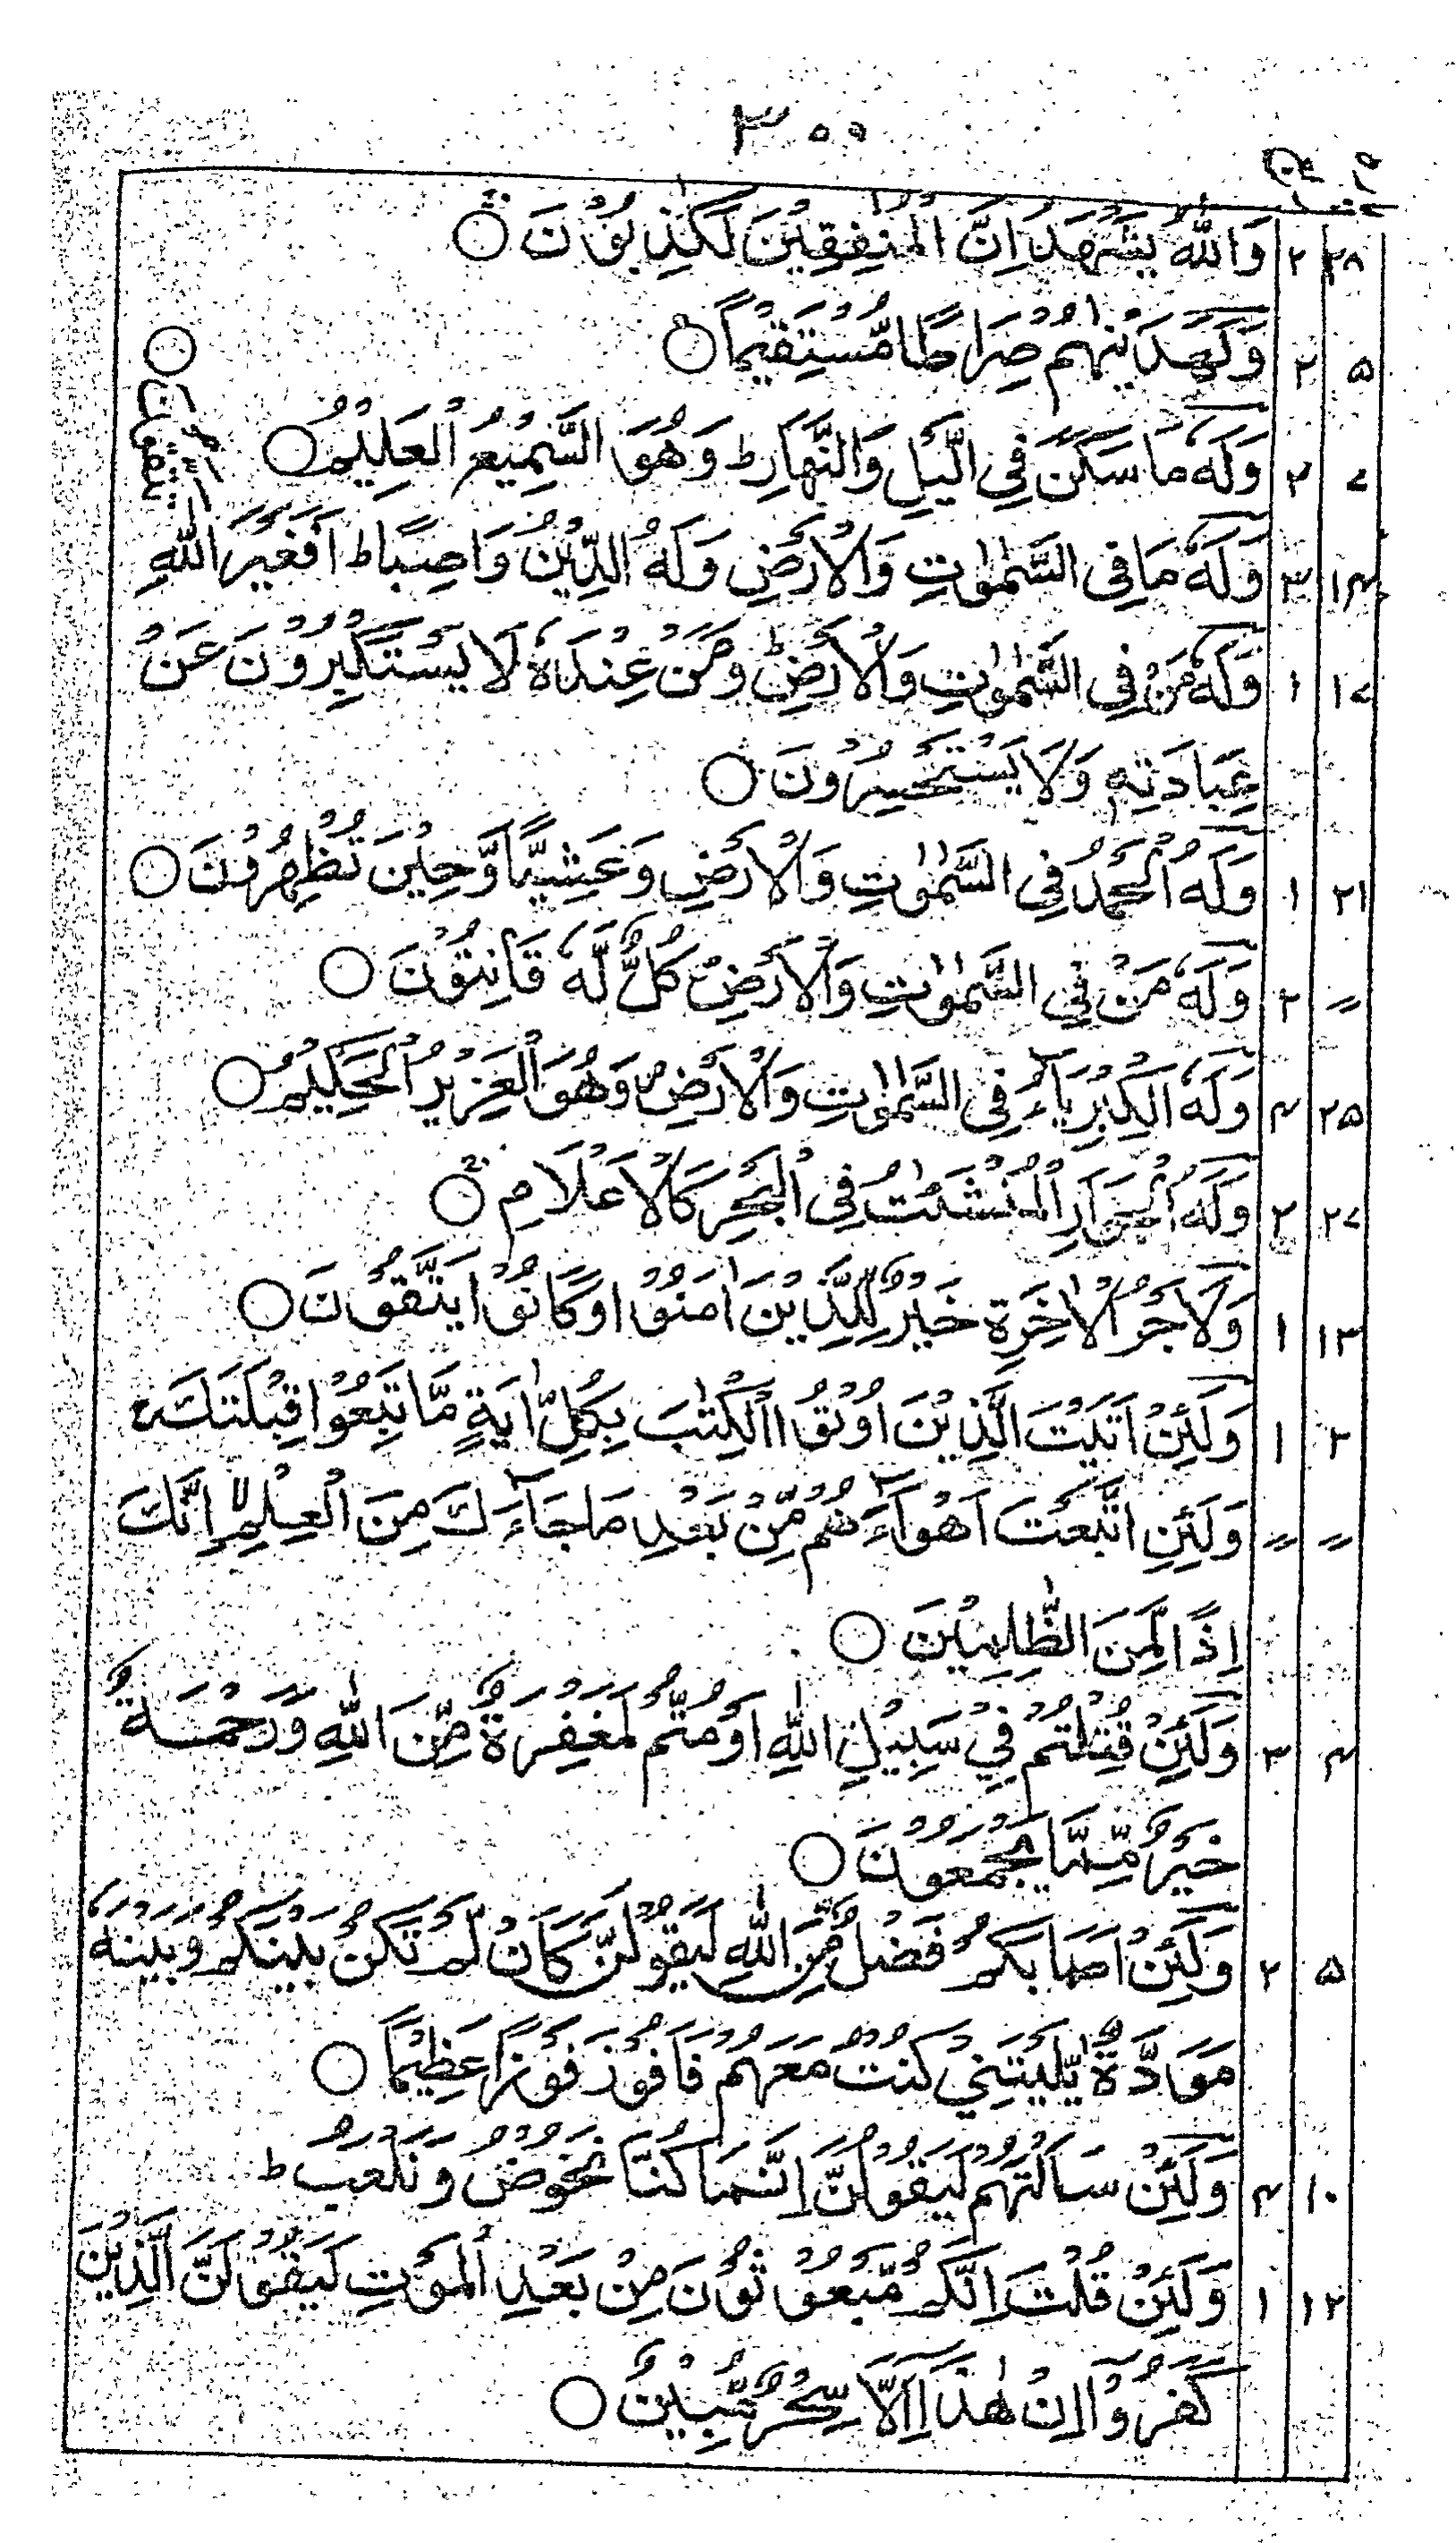 ۳۵۵
۲۸ ۲ وَاللّٰهُ يَشْهَدُ اِنَّ الْمُنٰفِقِيْنَ لَكٰذِبُوْنَ ○
۵ ۲ وَلَهَدَيْنٰهُمْ صِرَاطًا مُّسْتَقِيْمًا ○
۷ ۲ وَلَهٗ مَا سَكَنَ فِي الَّيْلِ وَالنَّهَارِ ط وَهُوَ السَّمِيْعُ الْعَلِيْمُ ○
۱۴ ۳ وَلَهٗ مَا فِي السَّمٰوٰتِ وَالْاَرْضِ وَلَهُ الدِّيْنُ وَاصِبًا ط اَفَغَيْرَ اللّٰهِ تَتَّقُوْنَ ○
۱۷ ۱ وَلَهٗ مَنْ فِي السَّمٰوٰتِ وَالْاَرْضِ ط وَمَنْ عِنْدَهٗ لَا يَسْتَكْبِرُوْنَ عَنْ
عِبَادَتِهٖ وَلَا يَسْتَحْسِرُوْنَ ○
۲۱ ۱ وَلَهُ الْحَمْدُ فِي السَّمٰوٰتِ وَالْاَرْضِ وَعَشِيًّا وَّحِيْنَ تُظْهِرُوْنَ ○
〃 ۳ وَلَهٗ مَنْ فِي السَّمٰوٰتِ وَالْاَرْضِ كُلٌّ لَّهٗ قَانِتُوْنَ ○
۲۵ ۴ وَلَهُ الْكِبْرِيَآءُ فِي السَّمٰوٰتِ وَالْاَرْضِ وَهُوَ الْعَزِيْزُ الْحَكِيْمُ ○
۲۷ ۲ وَلَهُ الْجَوَارِ الْمُنْشَئٰتُ فِي الْبَحْرِ كَالْاَعْلَامِ ○
۱۳ ۱ وَلَاَجْرُ الْاٰخِرَةِ خَيْرٌ لِّلَّذِيْنَ اٰمَنُوْا وَكَانُوْا يَتَّقُوْنَ ○
۲ ۱ وَلَئِنْ اَتَيْتَ الَّذِيْنَ اُوْتُوا الْكِتٰبَ بِكُلِّ اٰيَةٍ مَّا تَبِعُوْا قِبْلَتَكَ
〃 〃 وَلَئِنِ اتَّبَعْتَ اَهْوَآءَهُمْ مِّنْ بَعْدِ مَا جَآءَكَ مِنَ الْعِلْمِ اِنَّكَ
اِذًا لَّمِنَ الظّٰلِمِيْنَ ○
۴ ۳ وَلَئِنْ قُتِلْتُمْ فِيْ سَبِيْلِ اللّٰهِ اَوْ مُتُّمْ لَمَغْفِرَةٌ مِّنَ اللّٰهِ وَرَحْمَةٌ
خَيْرٌ مِّمَّا يَجْمَعُوْنَ ○
۵ ۲ وَلَئِنْ اَصَابَكُمْ فَضْلٌ مِّنَ اللّٰهِ لَيَقُوْلَنَّ كَاَنْ لَّمْ تَكُنْ بَيْنَكُمْ وَبَيْنَهٗ
مَوَدَّةٌ يّٰلَيْتَنِيْ كُنْتُ مَعَهُمْ فَاَفُوْزَ فَوْزًا عَظِيْمًا ○
۱۰ ۴ وَلَئِنْ سَاَلْتَهُمْ لَيَقُوْلُنَّ اِنَّمَا كُنَّا نَخُوْضُ وَنَلْعَبُ ط
۱۲ ۱ وَلَئِنْ قُلْتَ اِنَّكُمْ مَّبْعُوْثُوْنَ مِنْ بَعْدِ الْمَوْتِ لَيَقُوْلَنَّ الَّذِيْنَ
كَفَرُوْٓا اِنْ هٰذَآ اِلَّا سِحْرٌ مُّبِيْنٌ ○